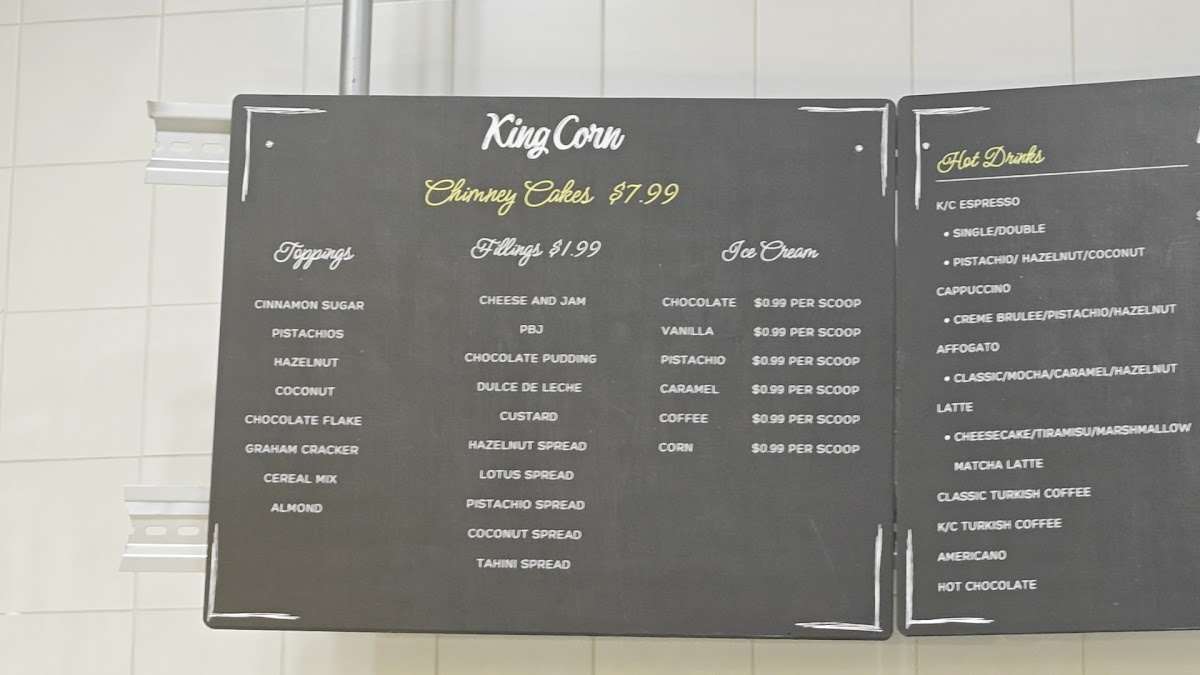 King Corn
Chimney Cakes $7.99
Toppings
CINNAMON SUGAR
PISTACHIOS
HAZELNUT
COCONUT
CHOCOLATE FLAKE
GRAHAM CRACKER
CEREAL MIX
ALMOND
Fillings $1.99
CHEESE AND JAM
PBJ
CHOCOLATE PUDDING
DULCE DE LECHE
CUSTARD
HAZELNUT SPREAD
LOTUS SPREAD
PISTACHIO SPREAD
COCONUT SPREAD
TAHINI SPREAD
Ice Cream
CHOCOLATE $0.99 PER SCOOP
VANILLA $0.99 PER SCOOP
PISTACHIO $0.99 PER SCOOP
CARAMEL $0.99 PER SCOOP
COFFEE $0.99 PER SCOOP
CORN $0.99 PER SCOOP
Hot Drinks
K/C ESPRESSO
• SINGLE/DOUBLE
• PISTACHIO/ HAZELNUT/COCONUT
CAPPUCCINO
• CREME BRULEE/PISTACHIO/HAZELNUT
AFFOGATO
• CLASSIC/MOCHA/CARAMEL/HAZELNUT
LATTE
• CHEESECAKE/TIRAMISU/MARSHMALLOW
MATCHA LATTE
CLASSIC TURKISH COFFEE
K/C TURKISH COFFEE
AMERICANO
HOT CHOCOLATE